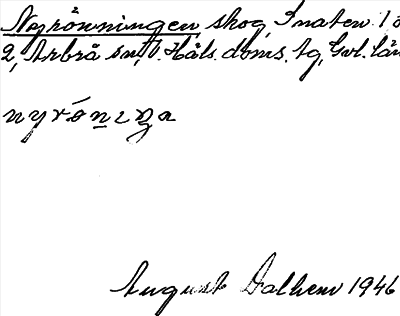 Nyröwningen, skog, Inaten 1 o
2, Arbrå sn, V. Häls. doms. tg, Gvl. län
nyrónıŋa
August Dalhem 1946